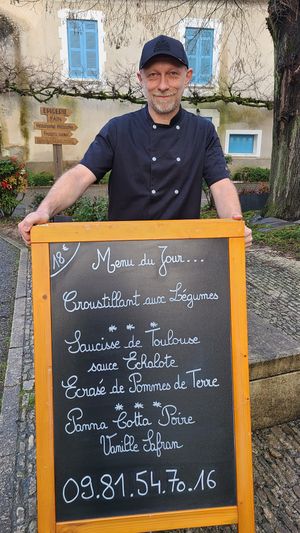 EPICERIE
PAIN
18€
Menu du Jour...
Croustillant aux Légumes
***
Saucisse de Toulouse
sauce Echalote
Ecrasé de Pommes de Terre
***
Panna Cotta Poire
Vanille Safran
09.81.54.70.16